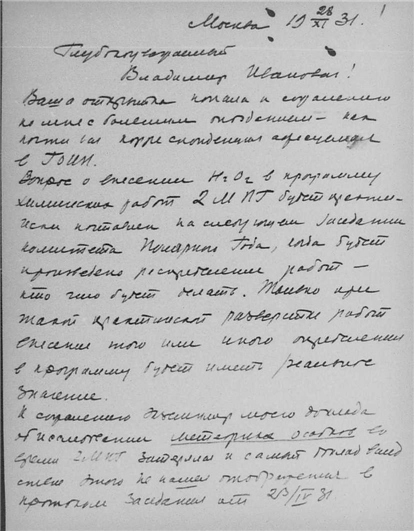 Москва 19 28/XI 31.
Глубокоуважаемый
Владимир Иванович!
Ваша открытка попала к сожалению
ко мне с большим опозданием – как
почти вся корреспонденция адресуемая
в ГОИН.
Вопрос о внесении H2O2 в программу
химических работ 2 МПГ будет
поставлен на следующем заседании
комитета Полярного Года, когда будет
произведено распределение работ –
кто что будет делать. Только при
такой практической разверстке работ
внесение того или иного определения
в программу будет иметь реальное
значение.
К сожалению экземпляр моего доклада
об изучении метеорных осадков во
время 2 МПГ затерялся и самый доклад
этого не нашел отображения в
протоколе заседания от 23/IV 31